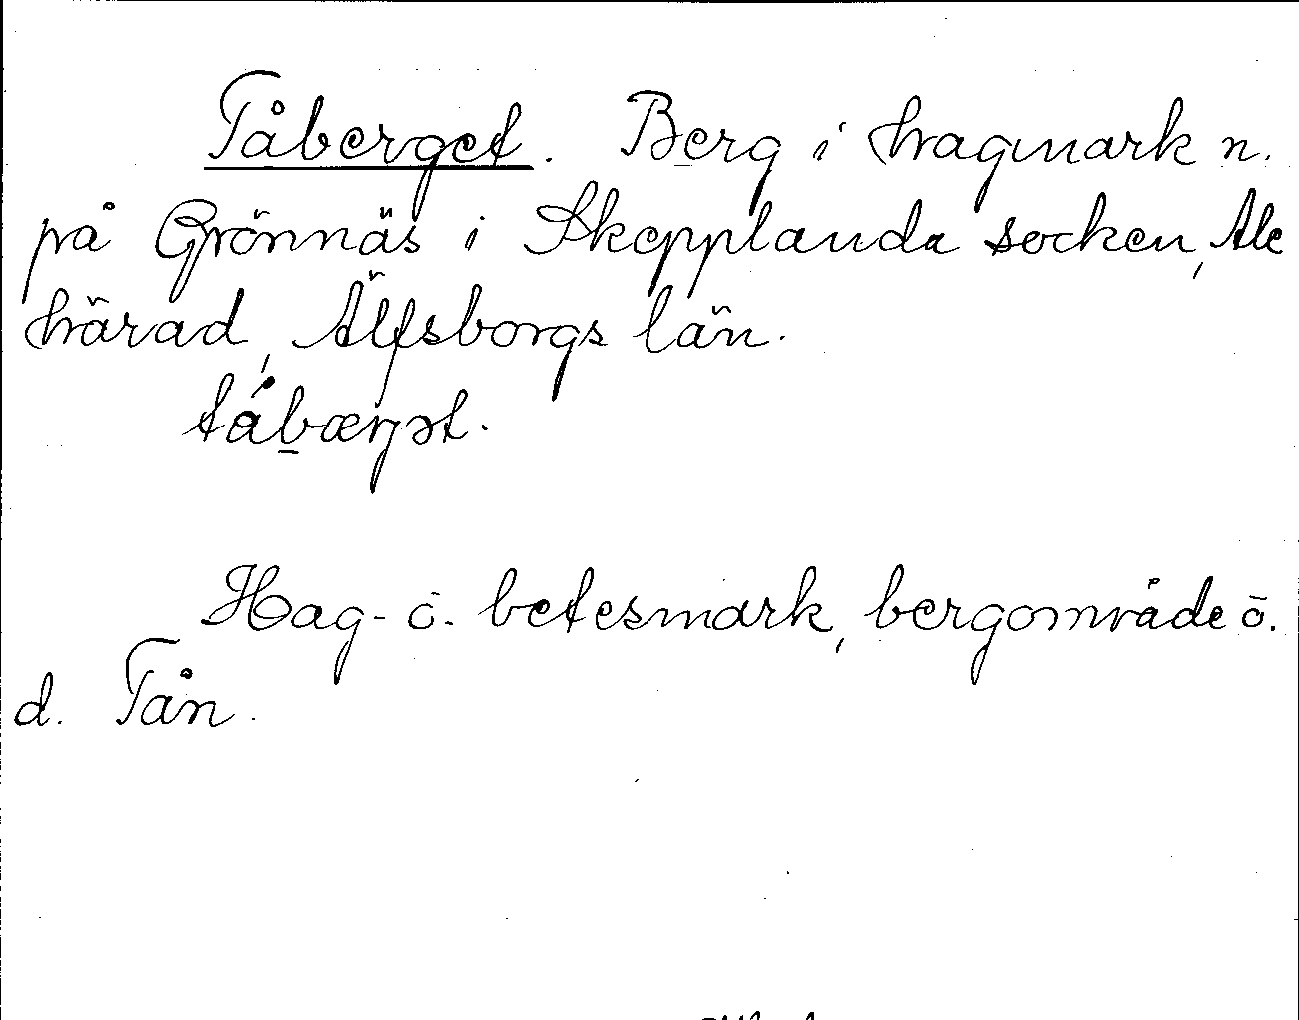 Tåberget. Berg i hagmark n.
på Grönnäs i Skepplanda socken, Ale
härad, Älfsborgs län.
tåbærjət.
Hag- o. betesmark, bergområde ö.
d. Tån.